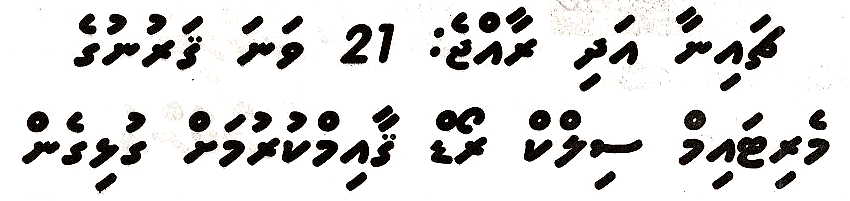 ޗައިނާ އަދި ރާއްޖެ: 21 ވަނަ ޤަރުނުގެ
މެރިޓައިމް ސިލްކް ރޯޑް ޤާއިމްކުރުމަށް ގުޅިގެން